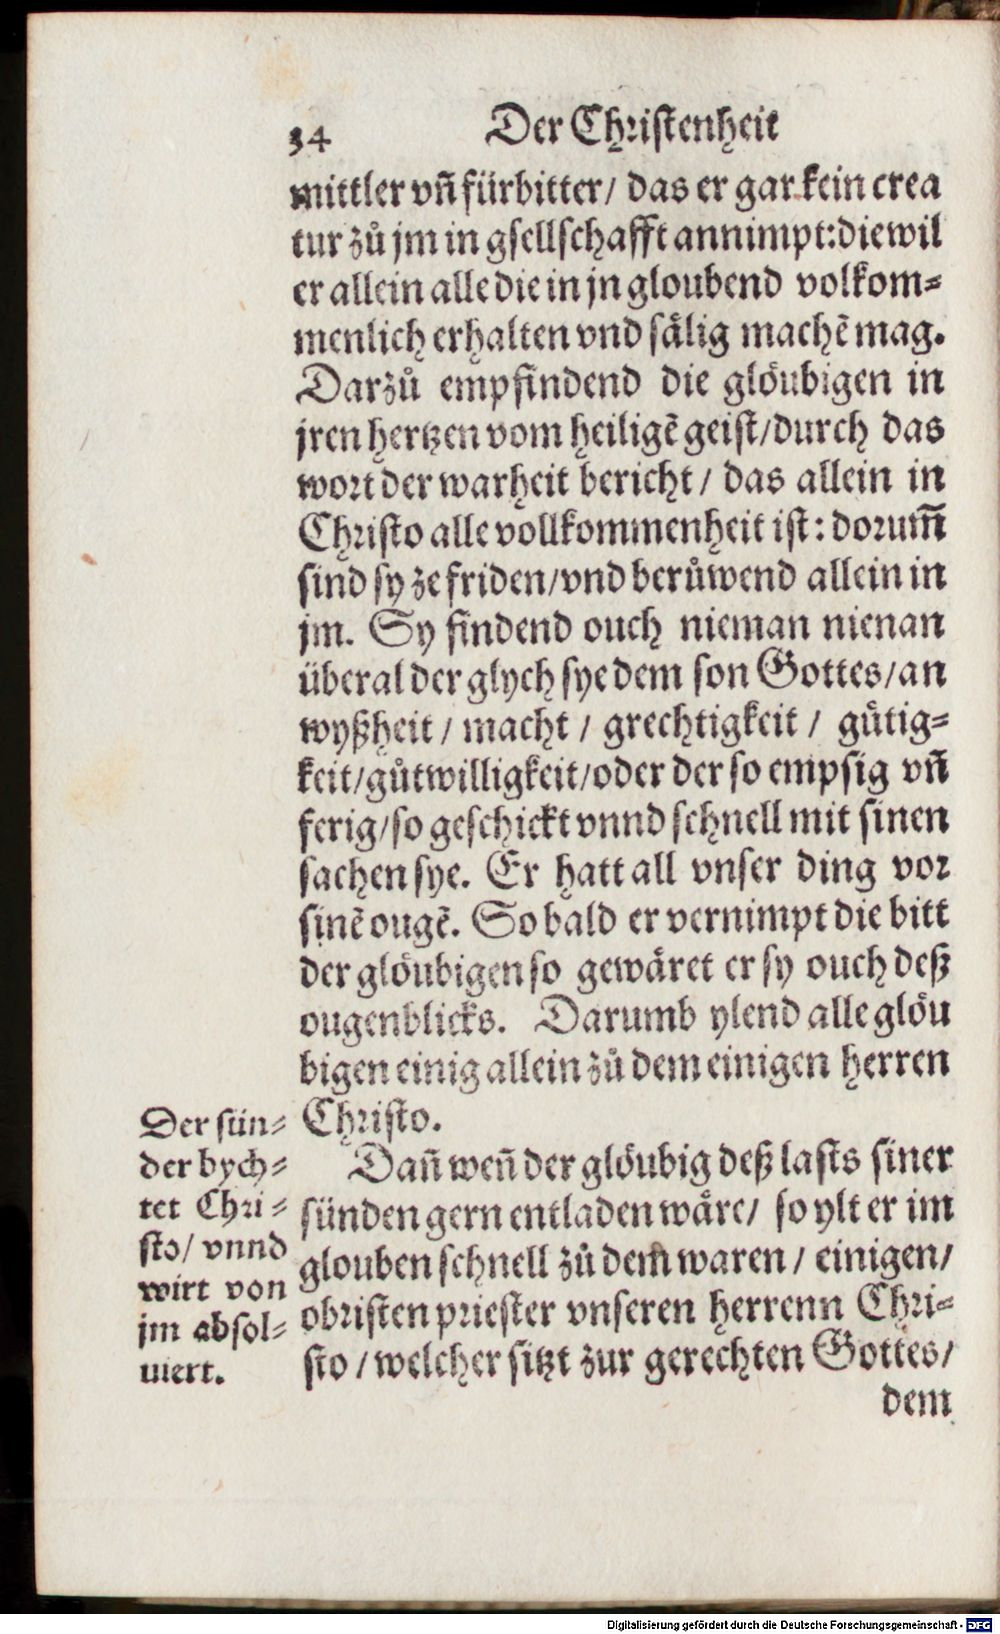 34 Der Christenheit
mittler vñ fürbitter/ das er gar kein crea
tur zů jm in gsellschafft annimpt: diewil
er allein alle die in jn gloubend volkom⸗
menlich erhalten vnd sålig machẽ mag.
Darzů empfindend die glöubigen in
jren hertzen vom heiligẽ geist/durch das
wort der warheit bericht/ das allein in
Christo alle vollkommenheit ist: dorum̃
sind sy ze friden/vnd berůwend allein in
jm. Sy findend ouch nieman nienan
überal der glych sye dem son Gottes/an
wyßheit / macht / grechtigkeit / gütig⸗
keit/gůtwilligkeit/oder der so empsig vñ
ferig/so geschickt vnnd schnell mit sinen
sachen sye. Er hatt all vnser ding vor
sinẽ ougẽ. So bald er vernimpt die bitt
der glöubigen so gewåret er sy ouch deß
ougenblicks. Darumb ylend alle glöu
bigen einig allein zů dem einigen herren
Christo.
Dañ weñ der glöubig deß lasts siner
sünden gern entladen wåre/ so ylt er im
glouben schnell zů dem waren / einigen/
obristen priester vnseren herrenn Chri⸗
sto / welcher sitzt zur gerechten Gottes/
dem
Der sün⸗
der bych⸗
tet Chri⸗
sto/ vnnd
wirt von
jm absol⸗
uiert.
Digitalisierung gefördert durch die Deutsche Forschungsgemeinschaft - DFG